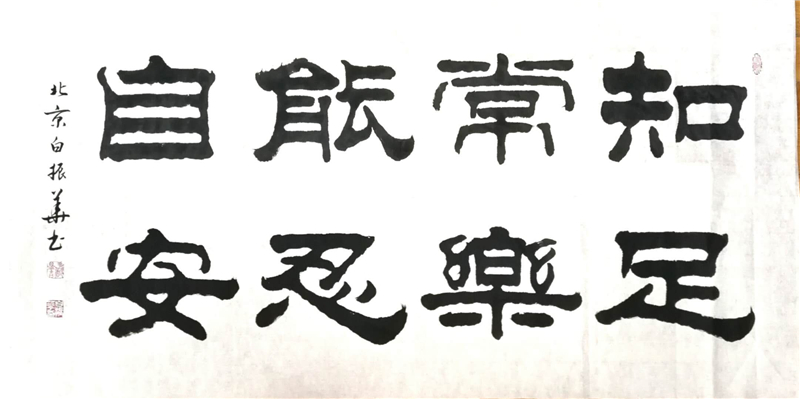 知足
常樂
能忍
自安
北京白振華书